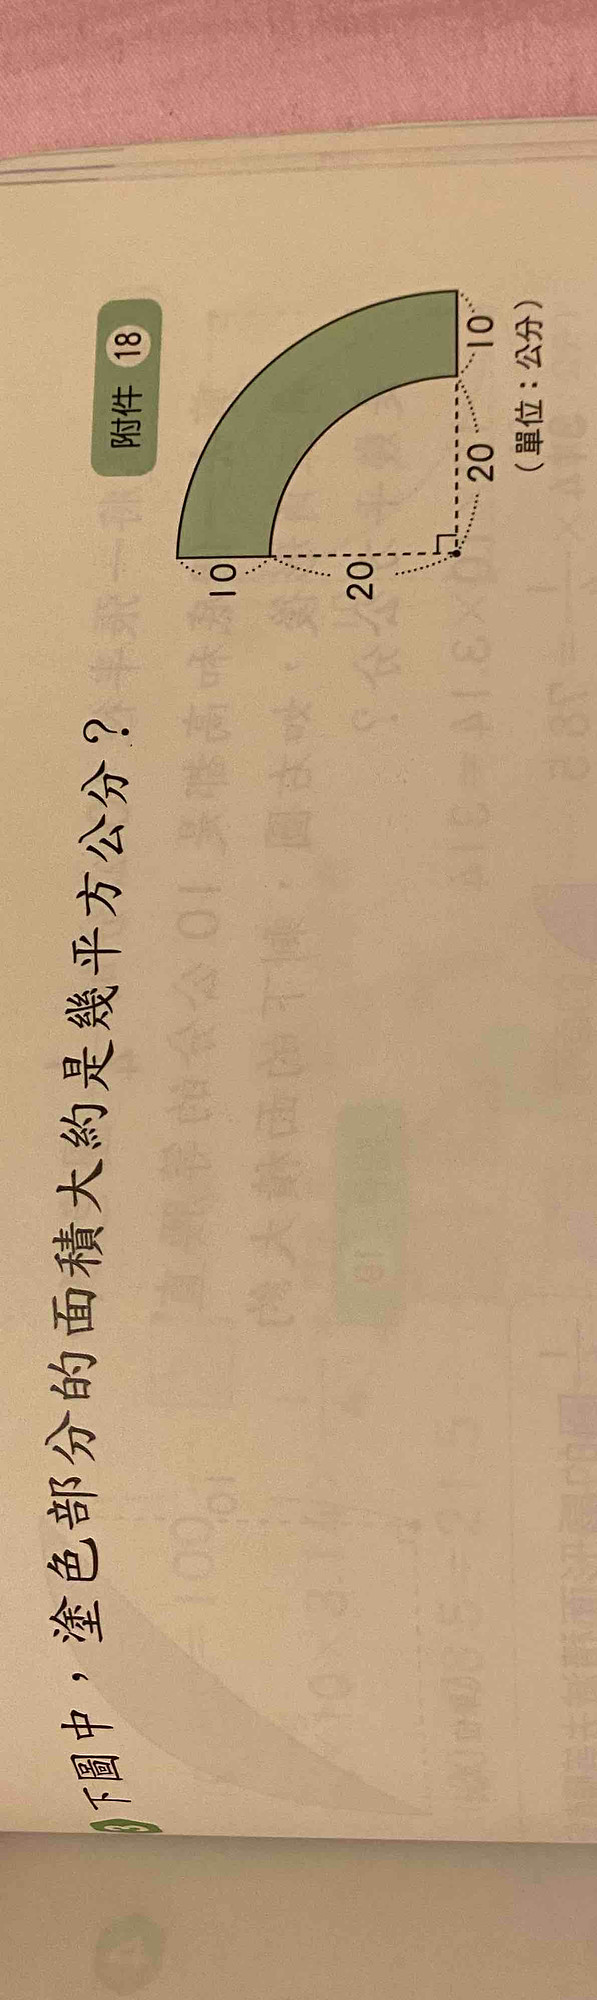 3 下圖中，塗色部分的面積大約是幾平方公分？
附件 18
10
20
20
10
（單位：公分）